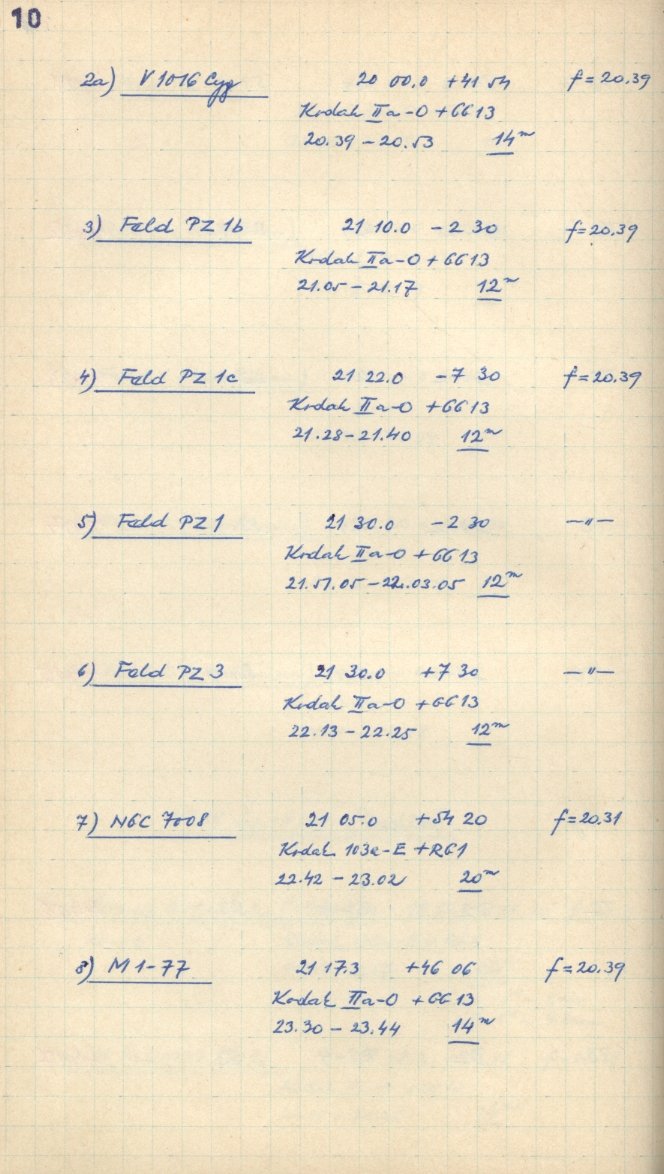 10
2a) V 1016 Cyg 20 00.0 +41 54 f = 20.39
Kodak IIa-O + GG 13
20.39 - 20.53 14m
3) Feld PZ 1b 21 10.0 -2 30 f = 20.39
Kodak IIa-O + GG 13
21.05 - 21.17 12m
4) Feld PZ 1c 21 22.0 -7 30 f = 20.39
Kodak IIa-O + GG 13
21.28 - 21.40 12m
5) Feld PZ 1 21 30.0 -2 30 — " —
Kodak IIa-O + GG 13
21.51.05 - 22.03.05 12m
6) Feld PZ 3 21 30.0 +7 30 — " —
Kodak IIa-O + GG 13
22.13 - 22.25 12m
7) NGC 7008 21 05.0 +54 20 f = 20.31
Kodak 103a-E + RG1
22.42 - 23.02 20m
8) M 1-77 21 17.3 +46 06 f = 20.39
Kodak IIa-O + GG 13
23.30 - 23.44 14m